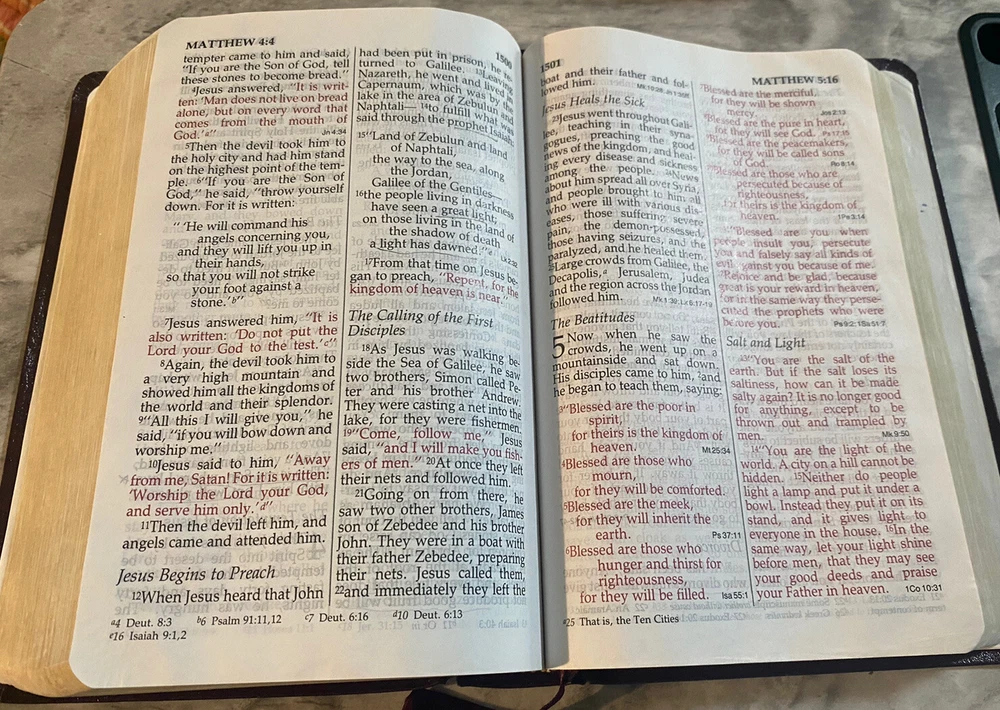 MATTHEW 4:4
1500
tempter came to him and said,
"If you are the Son of God, tell
these stones to become bread."
4Jesus answered, "It is writ-
ten: 'Man does not live on bread
alone, but on every word that
comes from the mouth of
God.'a"
Jn 4:34
5Then the devil took him to
the holy city and had him stand
on the highest point of the tem-
ple. 6"If you are the Son of
God," he said, "throw yourself
down. For it is written:
"'He will command his
angels concerning you,
and they will lift you up in
their hands,
so that you will not strike
your foot against a
stone.'b"
7Jesus answered him, "It is
also written: 'Do not put the
Lord your God to the test.'c"
8Again, the devil took him to
a very high mountain and
showed him all the kingdoms of
the world and their splendor.
9"All this I will give you," he
said, "if you will bow down and
worship me."
10Jesus said to him, "Away
from me, Satan! For it is written:
'Worship the Lord your God,
and serve him only.'d"
11Then the devil left him, and
angels came and attended him.
Jesus Begins to Preach
12When Jesus heard that John
had been put in prison, he re-
turned to Galilee. 13Leaving
Nazareth, he went and lived in
Capernaum, which was by the
lake in the area of Zebulun and
Naphtali— 14to fulfill what was
said through the prophet Isaiah:
15"Land of Zebulun and land
of Naphtali,
the way to the sea, along
the Jordan,
Galilee of the Gentiles—
16the people living in darkness
have seen a great light;
on those living in the land of
the shadow of death
a light has dawned."e
Lk 2:32
17From that time on Jesus be-
gan to preach, "Repent, for the
kingdom of heaven is near."
The Calling of the First
Disciples
18As Jesus was walking be-
side the Sea of Galilee, he saw
two brothers, Simon called Pe-
ter and his brother Andrew.
They were casting a net into the
lake, for they were fishermen.
19"Come, follow me," Jesus
said, "and I will make you fish-
ers of men." 20At once they left
their nets and followed him.
21Going on from there, he
saw two other brothers, James
son of Zebedee and his brother
John. They were in a boat with
their father Zebedee, preparing
their nets. Jesus called them,
22and immediately they left the
a4 Deut. 8:3 b6 Psalm 91:11,12 c7 Deut. 6:16 d10 Deut. 6:13
e16 Isaiah 9:1,2
1501
MATTHEW 5:16
boat and their father and fol-
lowed him.
Jesus Heals the Sick
23Jesus went throughout Gali-
lee, teaching in their syna-
gogues, preaching the good
news of the kingdom, and heal-
ing every disease and sickness
among the people. 24News
about him spread all over Syria,
and people brought to him all
who were ill with various dis-
eases, those suffering severe
pain, the demon-possessed,
those having seizures, and the
paralyzed, and he healed them.
25Large crowds from Galilee, the
Decapolis,a Jerusalem, Judea
and the region across the Jordan
followed him.
Mk 1:39; Lk 6:17-19
The Beatitudes
5 Now when he saw the
crowds, he went up on a
mountainside and sat down.
His disciples came to him, 2and
he began to teach them, saying:
3"Blessed are the poor in
spirit,
for theirs is the kingdom of
heaven.
Mt 25:34
4Blessed are those who
mourn,
for they will be comforted.
5Blessed are the meek,
for they will inherit the
earth.
Ps 37:11
6Blessed are those who
hunger and thirst for
righteousness,
for they will be filled.
Isa 55:1
7Blessed are the merciful,
for they will be shown
mercy.
Jas 2:13
8Blessed are the pure in heart,
for they will see God.
9Blessed are the peacemakers,
for they will be called sons
of God.
Ro 8:14
10Blessed are those who are
persecuted because of
righteousness,
for theirs is the kingdom of
heaven.
1Pe 3:14
11"Blessed are you when
people insult you, persecute
you and falsely say all kinds of
evil against you because of me.
12Rejoice and be glad, because
great is your reward in heaven,
for in the same way they perse-
cuted the prophets who were
before you.
Salt and Light
13"You are the salt of the
earth. But if the salt loses its
saltiness, how can it be made
salty again? It is no longer good
for anything, except to be
thrown out and trampled by
men.
Mk 9:50
14"You are the light of the
world. A city on a hill cannot be
hidden. 15Neither do people
light a lamp and put it under a
bowl. Instead they put it on its
stand, and it gives light to
everyone in the house. 16In the
same way, let your light shine
before men, that they may see
your good deeds and praise
your Father in heaven.
1Co 10:31
a25 That is, the Ten Cities